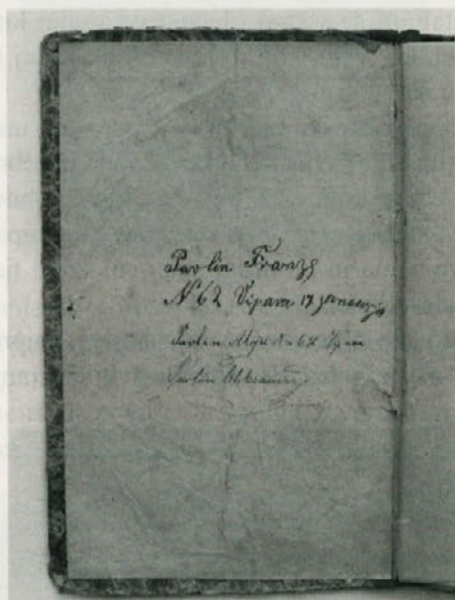 Pavlin Franz
N 62 Vipava 17
Pavlin Alojz N 62
Pavlin Aleksander